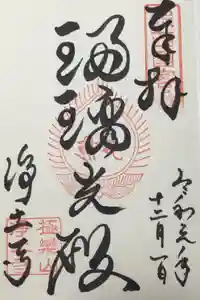 奉拝
令和元年
十二月一日
瑠璃光殿
浄土寺
極樂山